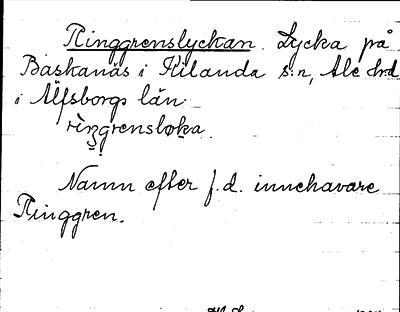 Ringgrenslyckan. Lycka på
Baskanäs i Kilanda s:n, Ale hrd
i Älfsborgs län.
rìŋgrensløka.
Namn efter f.d. innehavare
Ringgren.